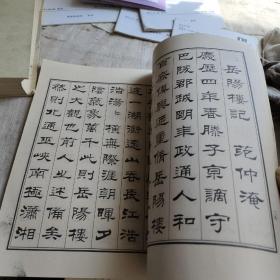 岳陽樓記 范仲淹
慶歷四年春滕子京謫守
巴陵郡越明年政通人和
百廢俱興乃重脩岳陽樓
庭一湖銜遠山吞長江浩
浩湯湯橫無際涯朝暉夕
陰氣象萬千此則岳陽樓
之大觀也前人之述備矣
然則北通巫峽南極瀟湘